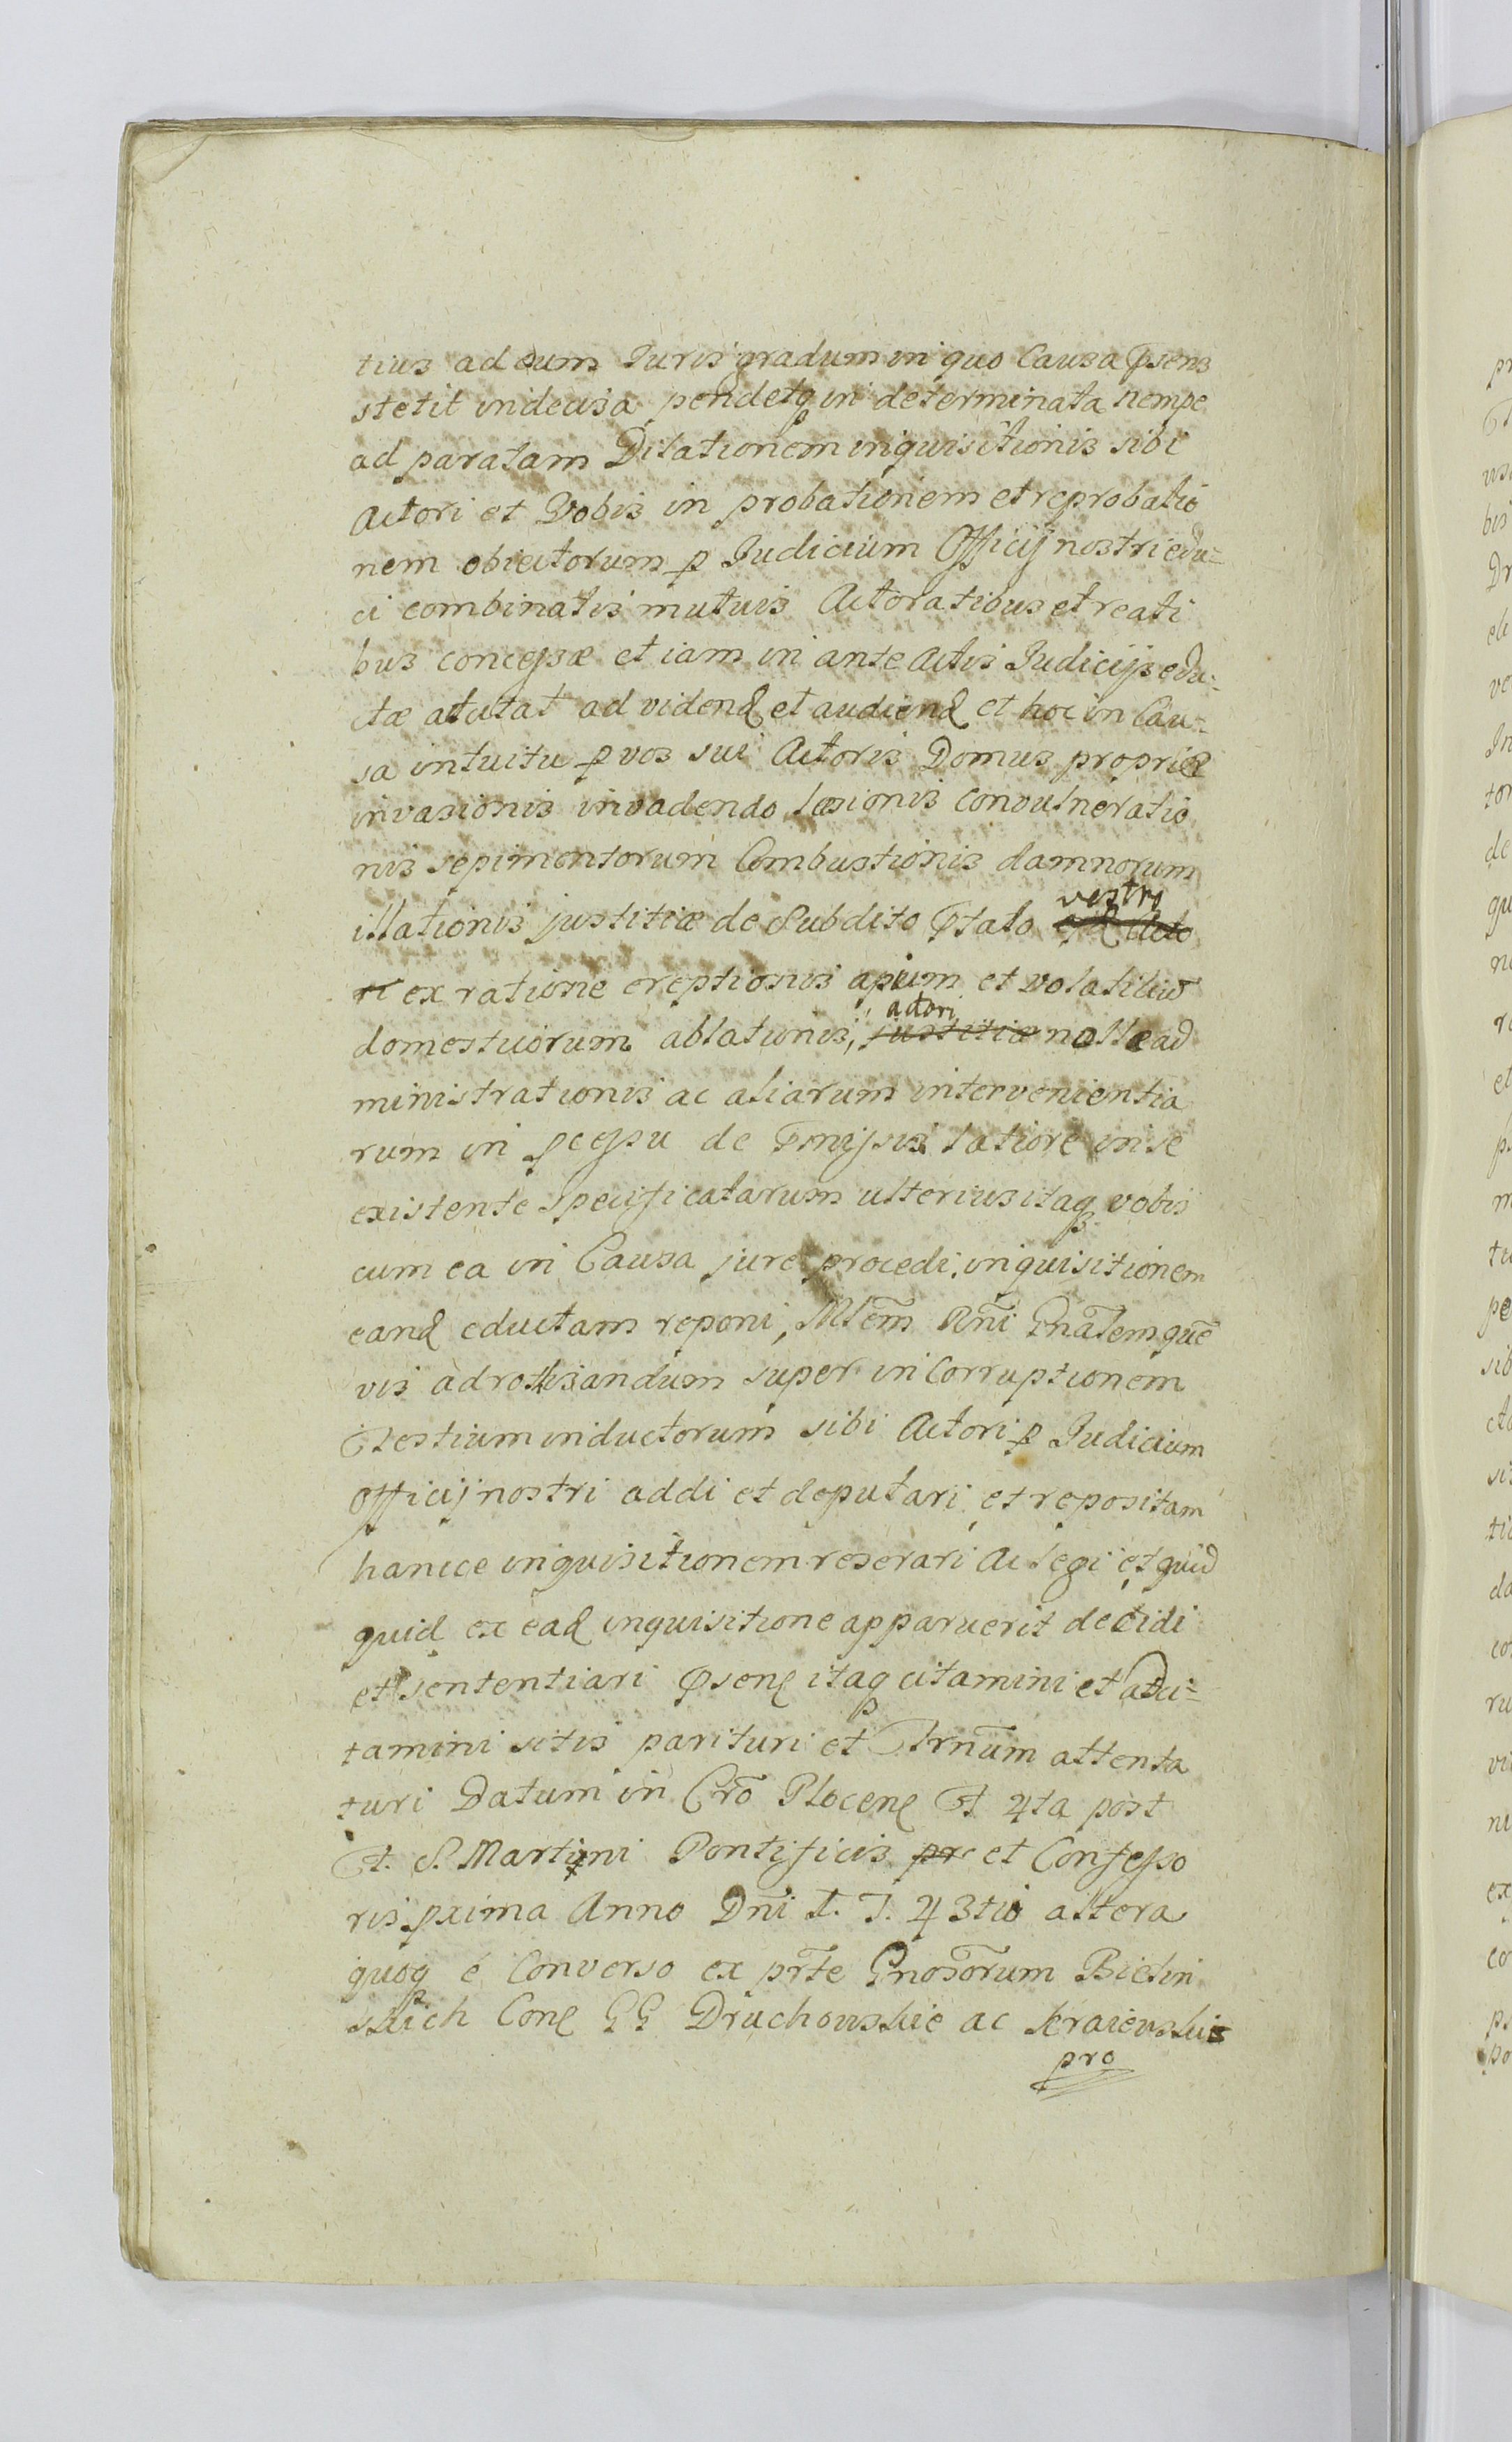 tius ad eum Juris gradum in quo Causa pñsens
stetit indecisa pendetq in determinata nempe
ad paratam Dilationem inquisitionis sibi
Actori et Vobis in probationem et reprobatio
nem obiectorum p Judicium Officij nostri edu-
ci combinatis mutuis Actoratibus et reati
bus concessæ et iam in ante Actis Judicijs edu-
ctæ actitat ad videnđ et audienđ et hoc in Cau-
sa intuitu p vos sui Actoris Domus propriæ
invasionis invadendo læsionis convulneratio
nis sepimentorum Combustionis damnorum
vestro
illationis justitiæ de Subdito Ptato
ex ratione ereptionis apium et volatiliũ
actori
domesticorum ablationis, justitiæ nollead
ministrationis ac aliarum intervenientia
rum in pcessu de Pmissis latiore in se
existente specificatarum ulterius itaq vobis
cum ea in Causa jure procedi, inquisitionem
eanđ eductam reponi, Mlem Rni Gnalem quẽ
vis ad rotisandum super in Corruptionem
Testium inductorum sibi Actori p Judicium
Officij nostri addi et deputari et repositam
hancce inquisitionem reserari Ac legi et quid
quid ex eađ inquisitione apparuerit decidi
et sententiari Psenę itaq citamini et adci-
tamini sitis parituri et Trnum attenta
turi Datum in Cro Plocenę F 4ta post
F. S. Martini Pontificis pr et Confesso
ris prima Anno Dni 1. 7. 43tio altera
quoq è Converso ex prte Gnosorum Bielin
skich Conę GG Druchowskie ac Kraiewskie
pro